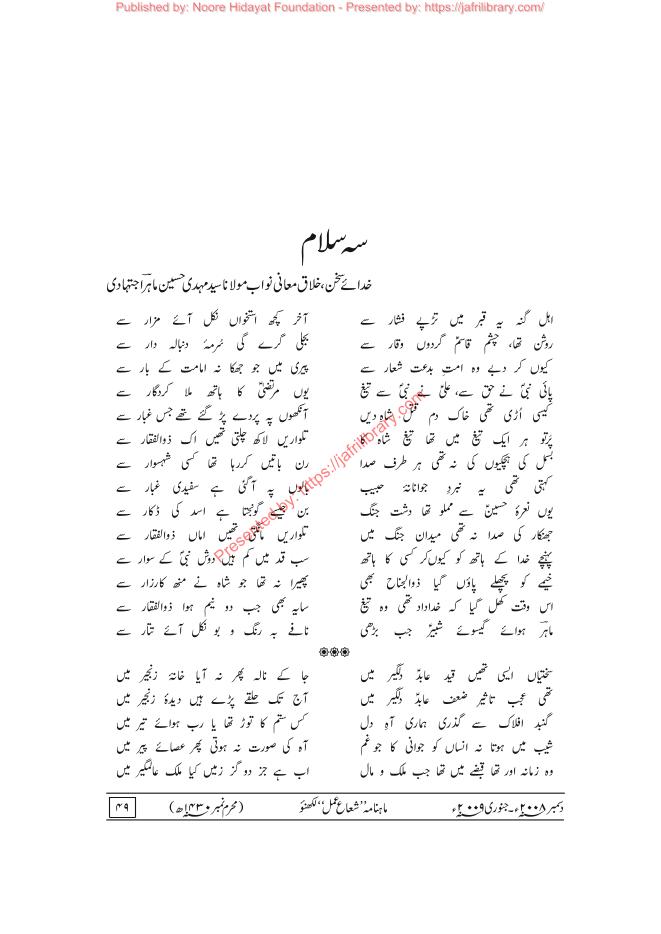 Published by: Noore Hidayat Foundation - Presented by: https://jafrilibrary.com/
سہ سلام
خدائے سخن، خلاق معانی نواب مولانا سید مہدی حسین ماہرؔ اجتہادی
اہل گنہ یہ قبر میں تڑپے فشار سے آخر کچھ استخواں نکل آئے مزار سے
روشن تھا، چشم قاسمؑ گردوں وقار سے بجلی گرے گی سُرمۂ دنبالہ دار سے
کیوں کر دبے وہ امت بدعت شعار سے پیری میں جو جھکا نہ امامت کے بار سے
پائی نبیؐ نے حق سے، علیؑ نے نبیؐ سے تیغ یوں مرتضیٰؑ کا ہاتھ ملا کردگار سے
کیسی اُڑی تھی خاک دم قتل شاہ دیں آنکھوں پہ پردے پڑ گئے تھے جس غبار سے
پَرتو ہر ایک تیغ میں تھا تیغ شاہ کا تلواریں لاکھ چلتی تھیں اک ذوالفقار سے
بسمل کی ہچکیوں کی نہ تھی ہر طرف صدا رن باتیں کررہا تھا کسی شہسوار سے
کہتی تھی یہ نبرد جوانانۂ حبیب بالوں پہ آگئی ہے سفیدی غبار سے
یوں نعرۂ حسینؑ سے مملو تھا دشت جنگ بن جیسے گونجتا ہے اسد کی ڈکار سے
جھنکار کی صدا نہ تھی میدان جنگ میں تلواریں مانگتی تھیں اماں ذوالفقار سے
پہنچے خدا کے ہاتھ کو کیوں کر کسی کا ہاتھ سب قد میں کم ہیں دوش نبیؐ کے سوار سے
خیمے کو پچھلے پاؤں گیا ذوالجناح بھی پھیرا نہ تھا جو شاہ نے منھ کارزار سے
اس وقت کھل گیا کہ خداداد تھی وہ تیغ سایہ بھی جب دو نیم ہوا ذوالفقار سے
ماہرؔ ہوائے گیسوئے شبیرؑ جب بڑھی نافے بہ رنگ و بو نکل آئے تتار سے
سختیاں ایسی تھیں قید عابدؑ دلگیر میں جا کے نالہ پھر نہ آیا خانۂ زنجیر میں
تھی عجب تاثیر ضعف عابدؑ دلگیر میں آج تک حلقے پڑے ہیں دیدۂ زنجیر میں
گنبد افلاک سے گذری ہماری آہ دل کس ستم کا توڑ تھا یا رب ہوائے تیر میں
شیب میں ہوتا نہ انساں کو جوانی کا جو غم آہ کی صورت نہ ہوتی پھر عصائے پیر میں
وہ زمانہ اور تھا قبضے میں تھا جب ملک و مال اب ہے جز دو گز زمیں کیا ملک عالمگیر میں
دسمبر ۲۰۰۸ء۔جنوری ۲۰۰۹ء ماہنامہ ”شعاع عمل“ لکھنؤ (محرم نمبر ۱۴۳۰ھ) ۴۹
Presented by: https://jafrilibrary.com/